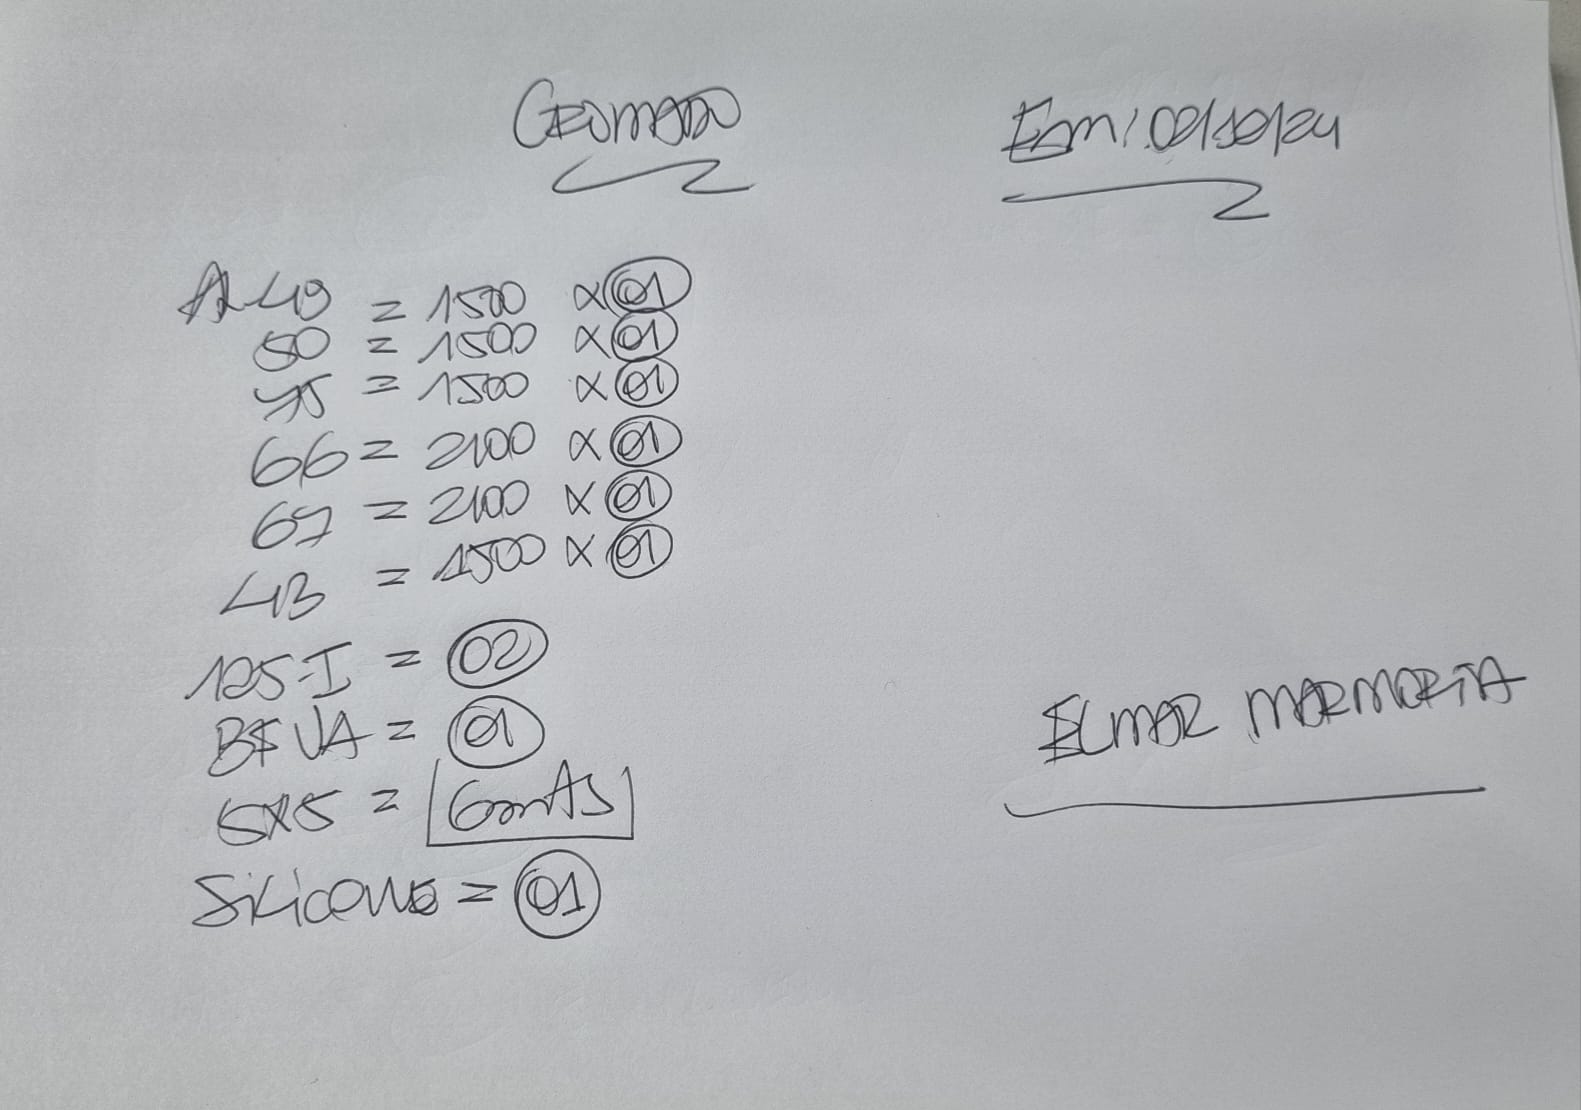 Em: 02/10/24
AL 49 = 1500 x 01
50 = 1500 x 01
75 = 1500 x 01
66 = 2100 x 01
67 = 2100 x 01
43 = 1500 x 01
125-I = 02
= 01
5x5 = 6mts
Silicone = 01
ELMAR MARMORIA